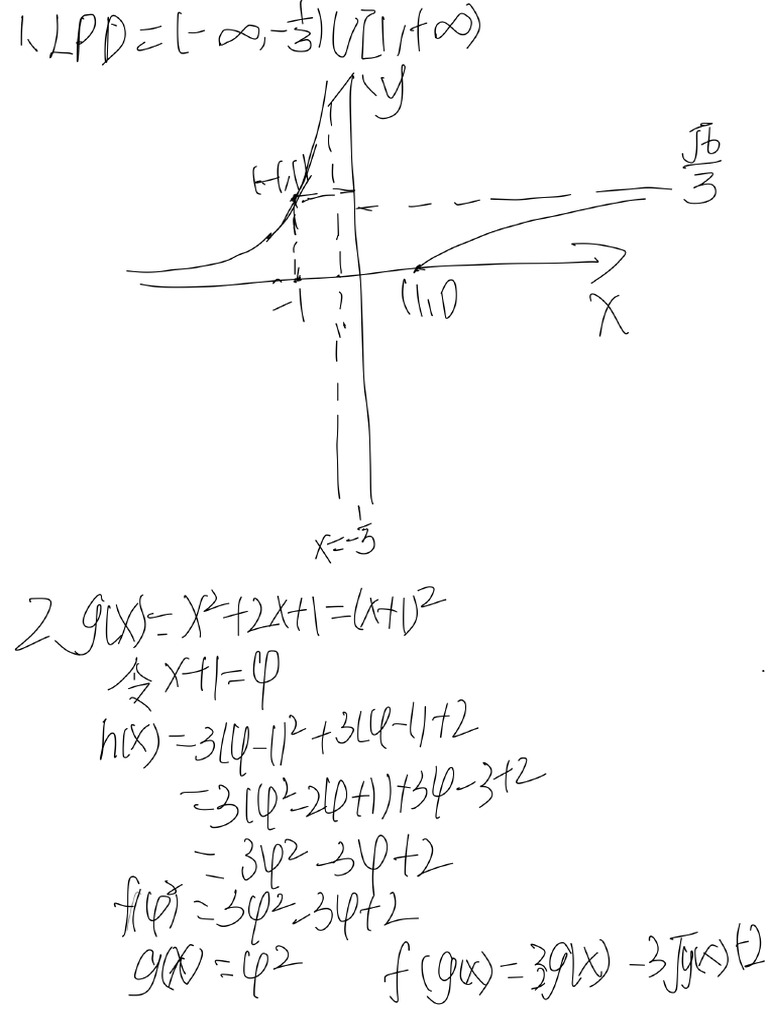 1、LPD=(-∞,-1/3)∪[1,+∞)
y
(-1,1)
√6/3
-1
(1,1)
x
x=-1/3
2、g(x)=x²+2x+1=(x+1)²
令x+1=φ
h(x)=3(φ-1)²+3(φ-1)+2
=3(φ²-2φ+1)+3φ-3+2
=3φ²-3φ+2
f(φ²)=3φ²-3φ+2
g(x)=φ² f(g(x)=3g(x)-3√g(x)+2